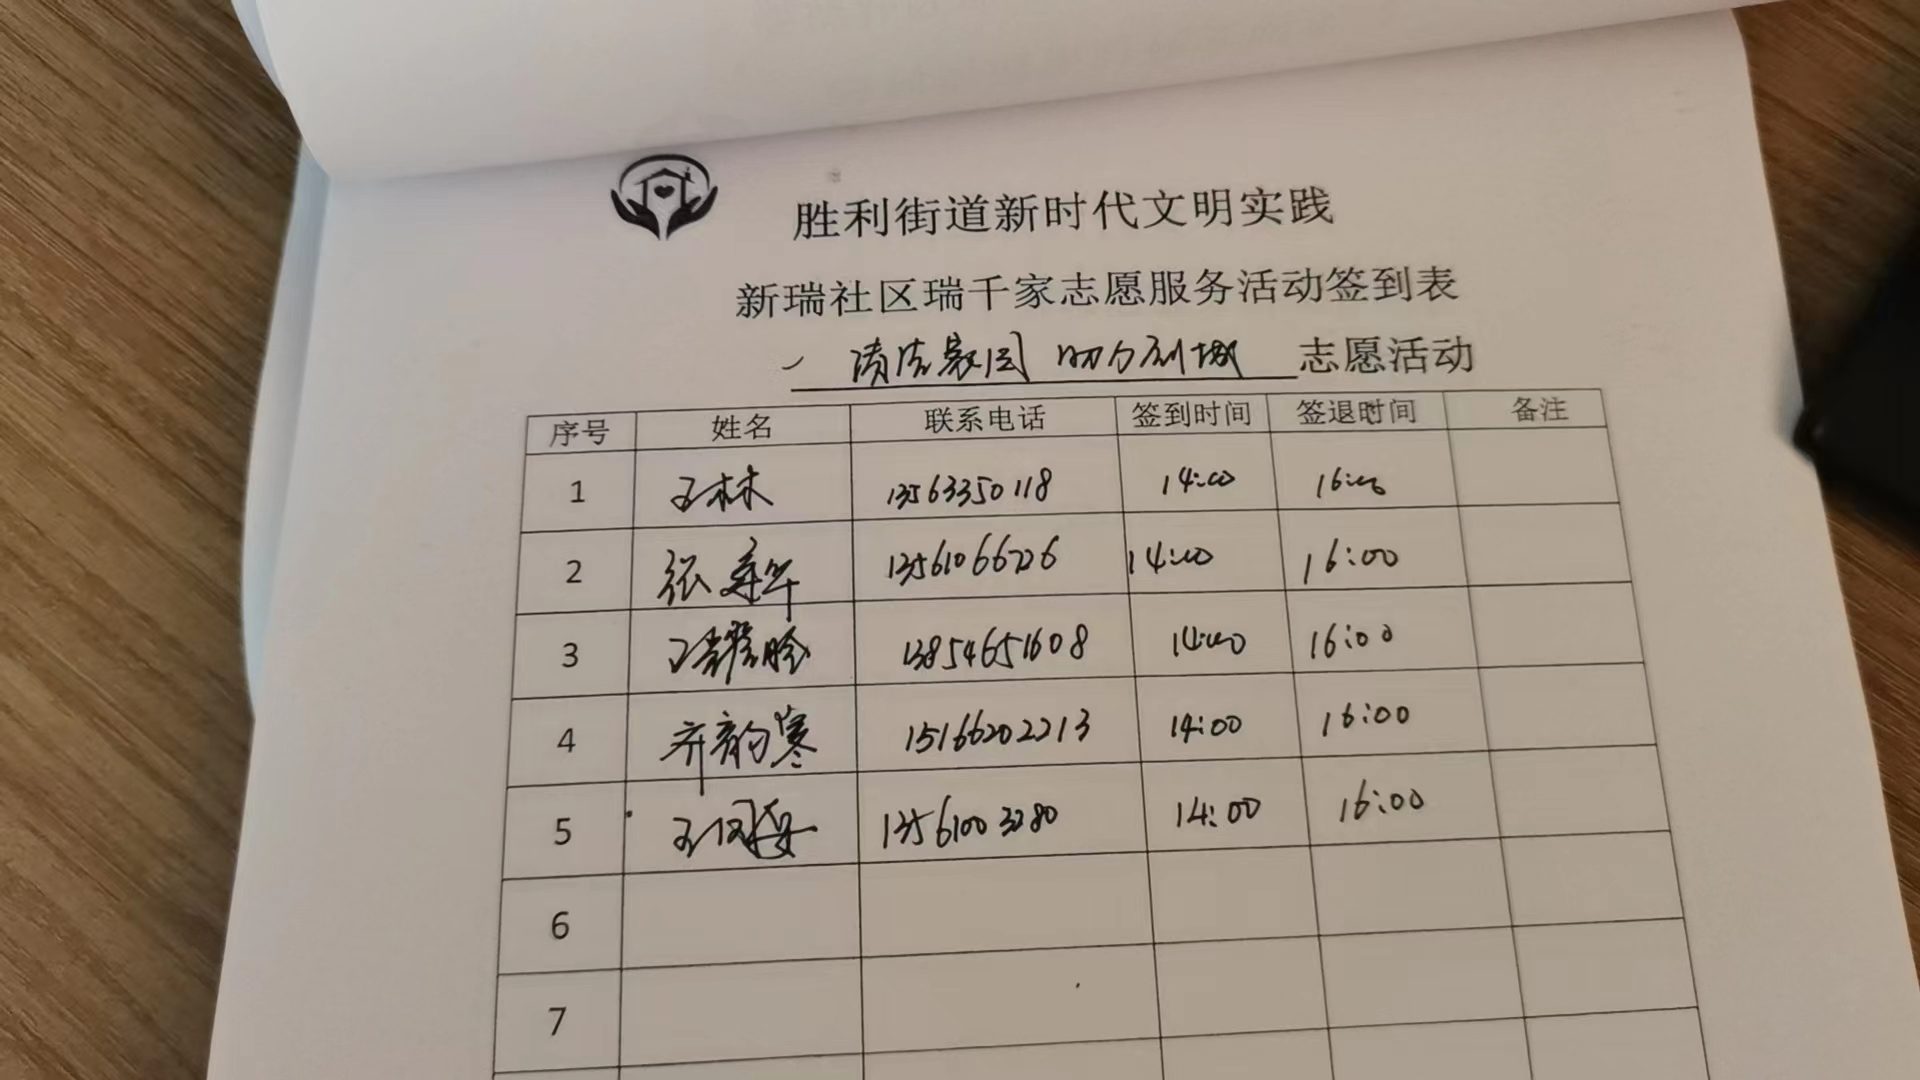 胜利街道新时代文明实践
新瑞社区瑞千家志愿服务活动签到表
清洁家园 助力创城 志愿活动
序号 姓名 联系电话 签到时间 签退时间 备注
1 王林 13563350118 14:00 16:00
2 张寿华 13561066726 14:00 16:00
3 王 13854651608 14:00 16:00
4 齐韵寒 15166202213 14:00 16:00
5 王 13561003280 14:00 16:00
6
7